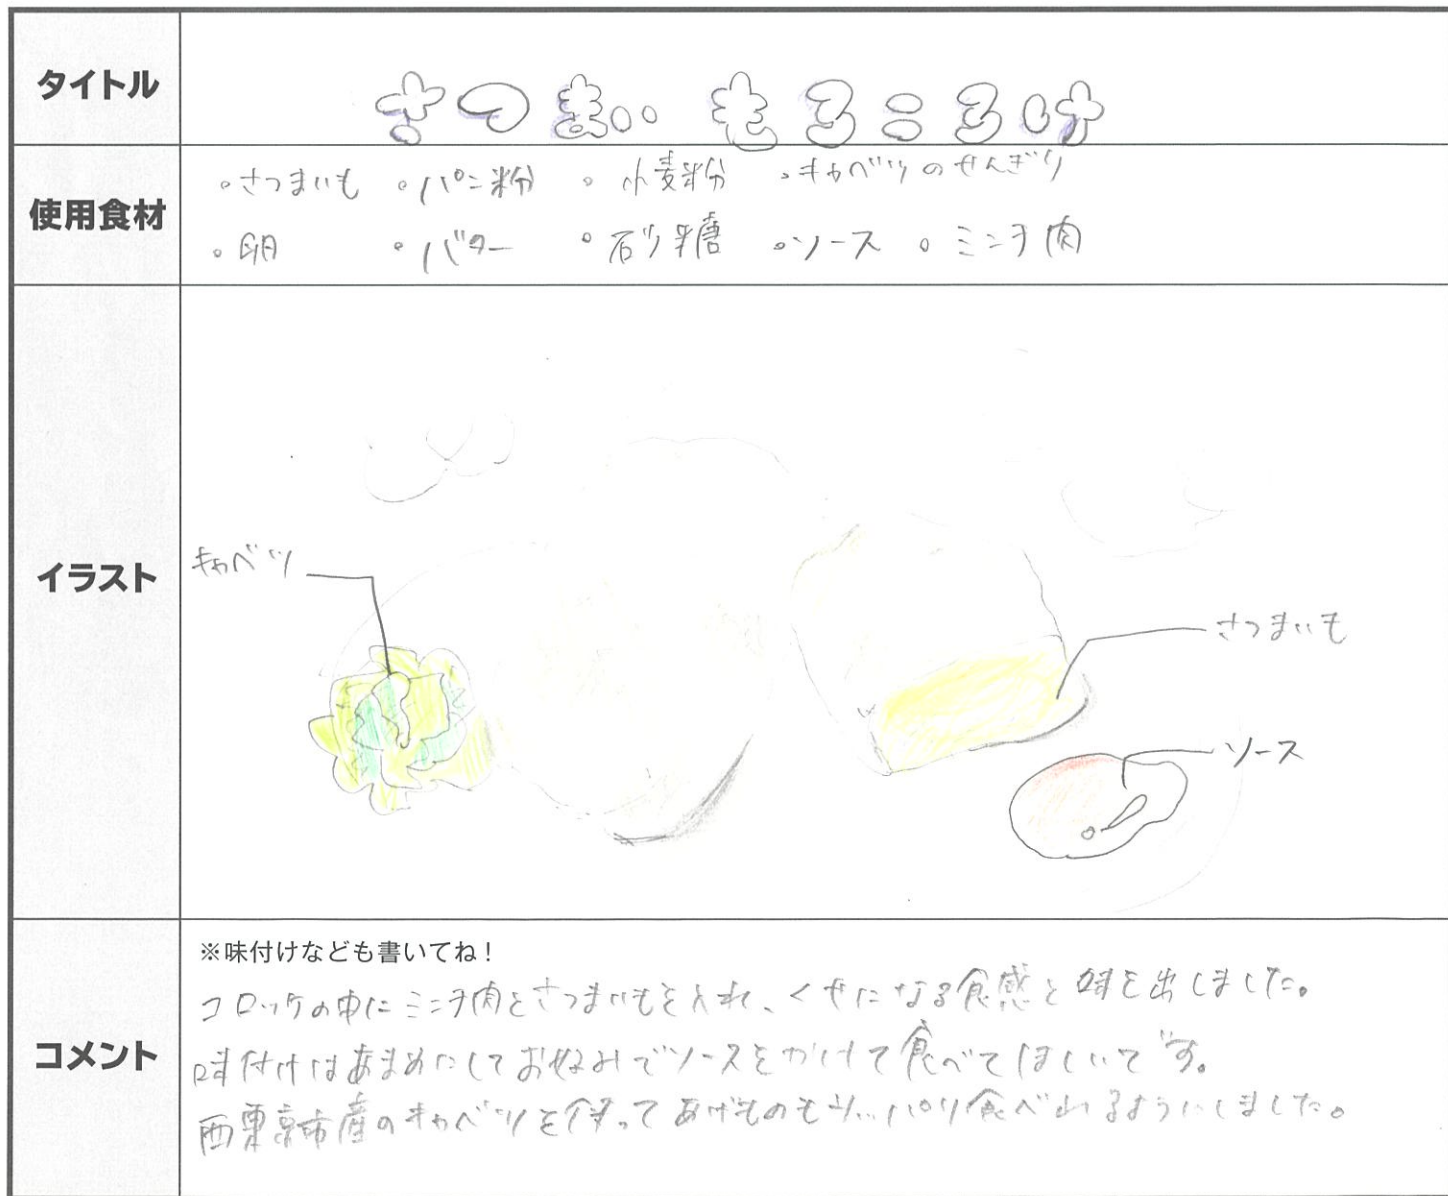 タイトル
さつまいもろころけ
使用食材
・さつまいも ・パン粉 ・小麦粉 ・キャベツのせんぎり
・卵 ・バター ・砂糖 ・ソース ・ミンチ肉
イラスト
キャベツ
さつまいも
ソース
コメント
※味付けなども書いてね！
コロッケの中にミンチ肉とさつまいもを入れ、くせになる食感と味を出しました。
味付けはあまめにしてお好みでソースをかけて食べてほしいです。
西東京市産のキャベツを使ってあげものもさっぱり食べれるようにしました。